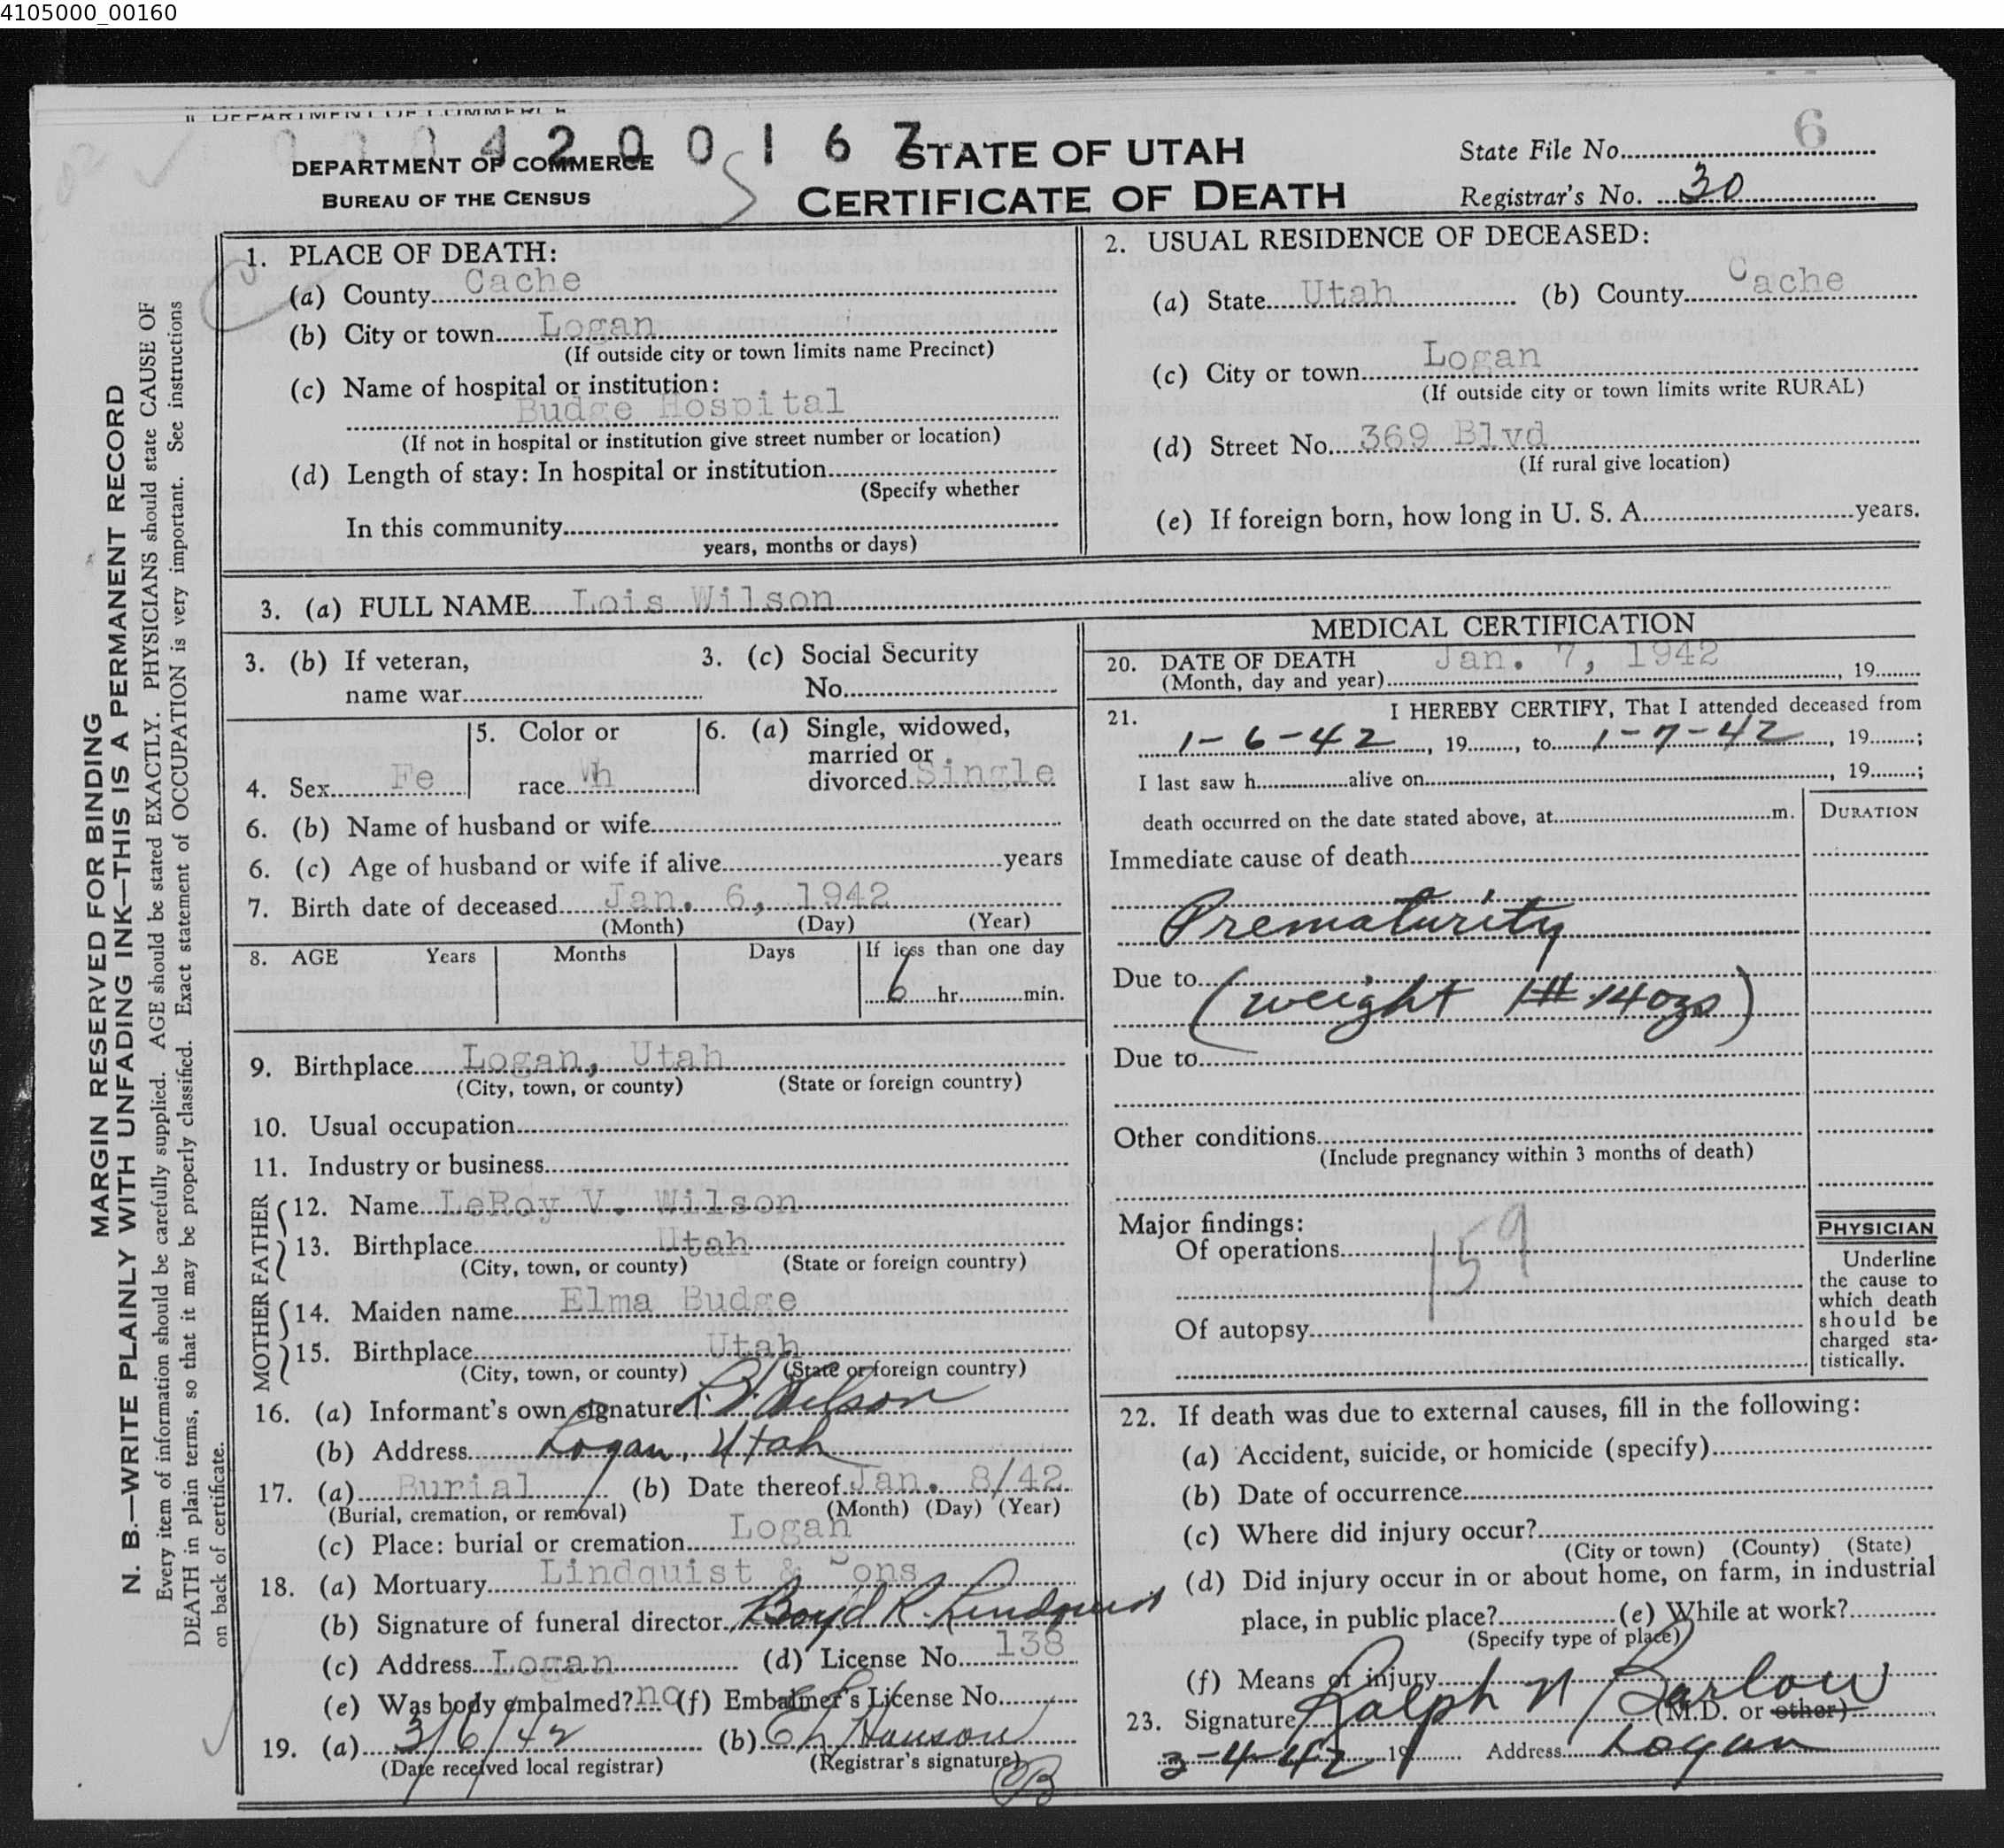 4105000_00160
DEPARTMENT OF COMMERCE
4200167
DEPARTMENT OF COMMERCE
BUREAU OF THE CENSUS
STATE OF UTAH
CERTIFICATE OF DEATH
State File No. 6
Registrar's No. 30
MARGIN RESERVED FOR BINDING
N. B.—WRITE PLAINLY WITH UNFADING INK—THIS IS A PERMANENT RECORD
Every item of information should be carefully supplied. AGE should be stated EXACTLY. PHYSICIANS should state CAUSE OF
DEATH in plain terms, so that it may be properly classified. Exact statement of OCCUPATION is very important. See instructions
on back of certificate.
1. PLACE OF DEATH:
(a) County Cache
(b) City or town Logan
(If outside city or town limits name Precinct)
(c) Name of hospital or institution:
Budge Hospital
(If not in hospital or institution give street number or location)
(d) Length of stay: In hospital or institution
(Specify whether
In this community
years, months or days)
2. USUAL RESIDENCE OF DECEASED:
(a) State Utah (b) County Cache
(c) City or town Logan
(If outside city or town limits write RURAL)
(d) Street No. 369 Blvd
(If rural give location)
(e) If foreign born, how long in U. S. A. years.
3. (a) FULL NAME Lois Wilson
3. (b) If veteran,
name war
3. (c) Social Security
No.
4. Sex Fe
5. Color or
race Wh
6. (a) Single, widowed,
married or
divorced Single
6. (b) Name of husband or wife
6. (c) Age of husband or wife if alive years
7. Birth date of deceased Jan. 6, 1942
(Month) (Day) (Year)
8. AGE Years Months Days If less than one day
6 hr. min.
9. Birthplace Logan, Utah
(City, town, or county) (State or foreign country)
10. Usual occupation
11. Industry or business
FATHER
12. Name LeRoy V. Wilson
13. Birthplace Utah
(City, town, or county) (State or foreign country)
MOTHER
14. Maiden name Elma Budge
15. Birthplace Utah
(City, town, or county) (State or foreign country)
16. (a) Informant's own signature Wilson
(b) Address Logan, Utah
17. (a) Burial (b) Date thereof Jan. 8/42
(Burial, cremation, or removal) (Month) (Day) (Year)
(c) Place: burial or cremation Logan
18. (a) Mortuary Lindquist & Sons
(b) Signature of funeral director Boyd R. Lindquist
(c) Address Logan (d) License No. 138
(e) Was body embalmed? no (f) Embalmer's License No.
19. (a) 3/6/42 (b) Hanson
(Date received local registrar) (Registrar's signature)
MEDICAL CERTIFICATION
20. DATE OF DEATH Jan. 7, 1942
(Month, day and year) , 19
21. I HEREBY CERTIFY, That I attended deceased from
1-6-42, 19, to 1-7-42, 19;
I last saw h alive on , 19;
death occurred on the date stated above, at m. DURATION
Immediate cause of death
Prematurity
Due to
(weight 1# 14ozs)
Due to
Other conditions
(Include pregnancy within 3 months of death)
Major findings:
Of operations
159
Of autopsy
PHYSICIAN
Underline
the cause to
which death
should be
charged sta-
tistically.
22. If death was due to external causes, fill in the following:
(a) Accident, suicide, or homicide (specify)
(b) Date of occurrence
(c) Where did injury occur?
(City or town) (County) (State)
(d) Did injury occur in or about home, on farm, in industrial
place, in public place? (e) While at work?
(Specify type of place)
(f) Means of injury
23. Signature Ralph N Barlow (M.D. or other)
3-4-42 19 Address Logan